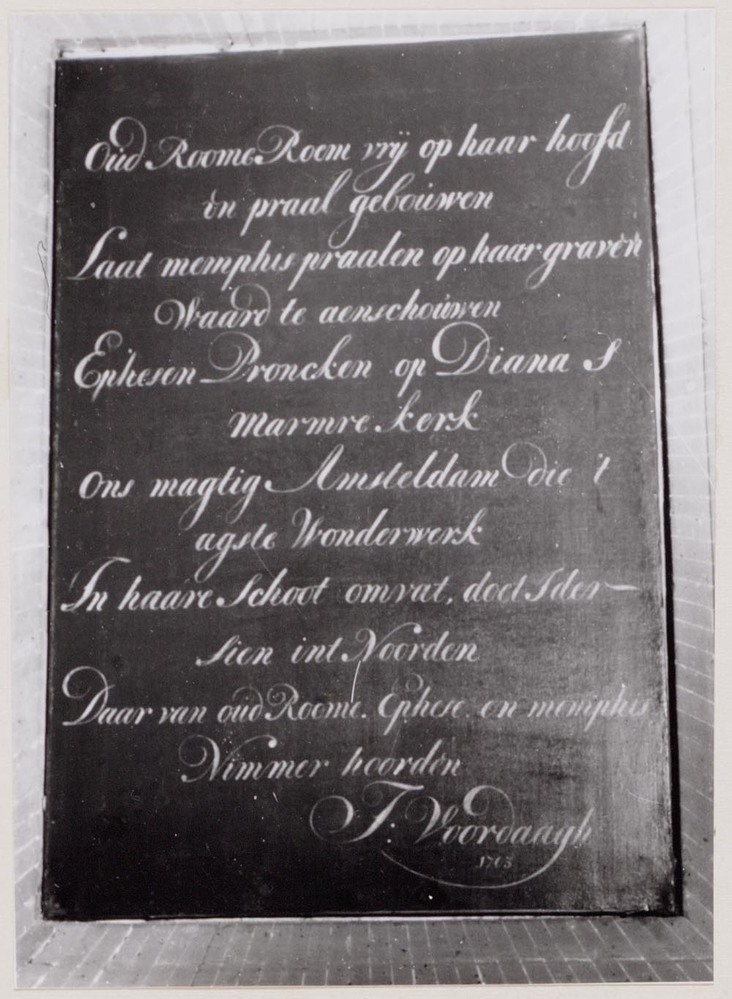 Oud Roome Roem vrÿ op haar hoofd
in praal gebouwen
Laat memphis praalen op haar graven
Waard te aenschouwen
Ephesen Proncken op Diana S
marmre kerk
Ons magtig Amsteldam die 't
agste Wonderwerk
In haare Schoot omvat, doet Ider-
sien int Noorden
Daar van oud Roome. Ephese. en memphis
Nimmer hoorden
J: Voordaagh